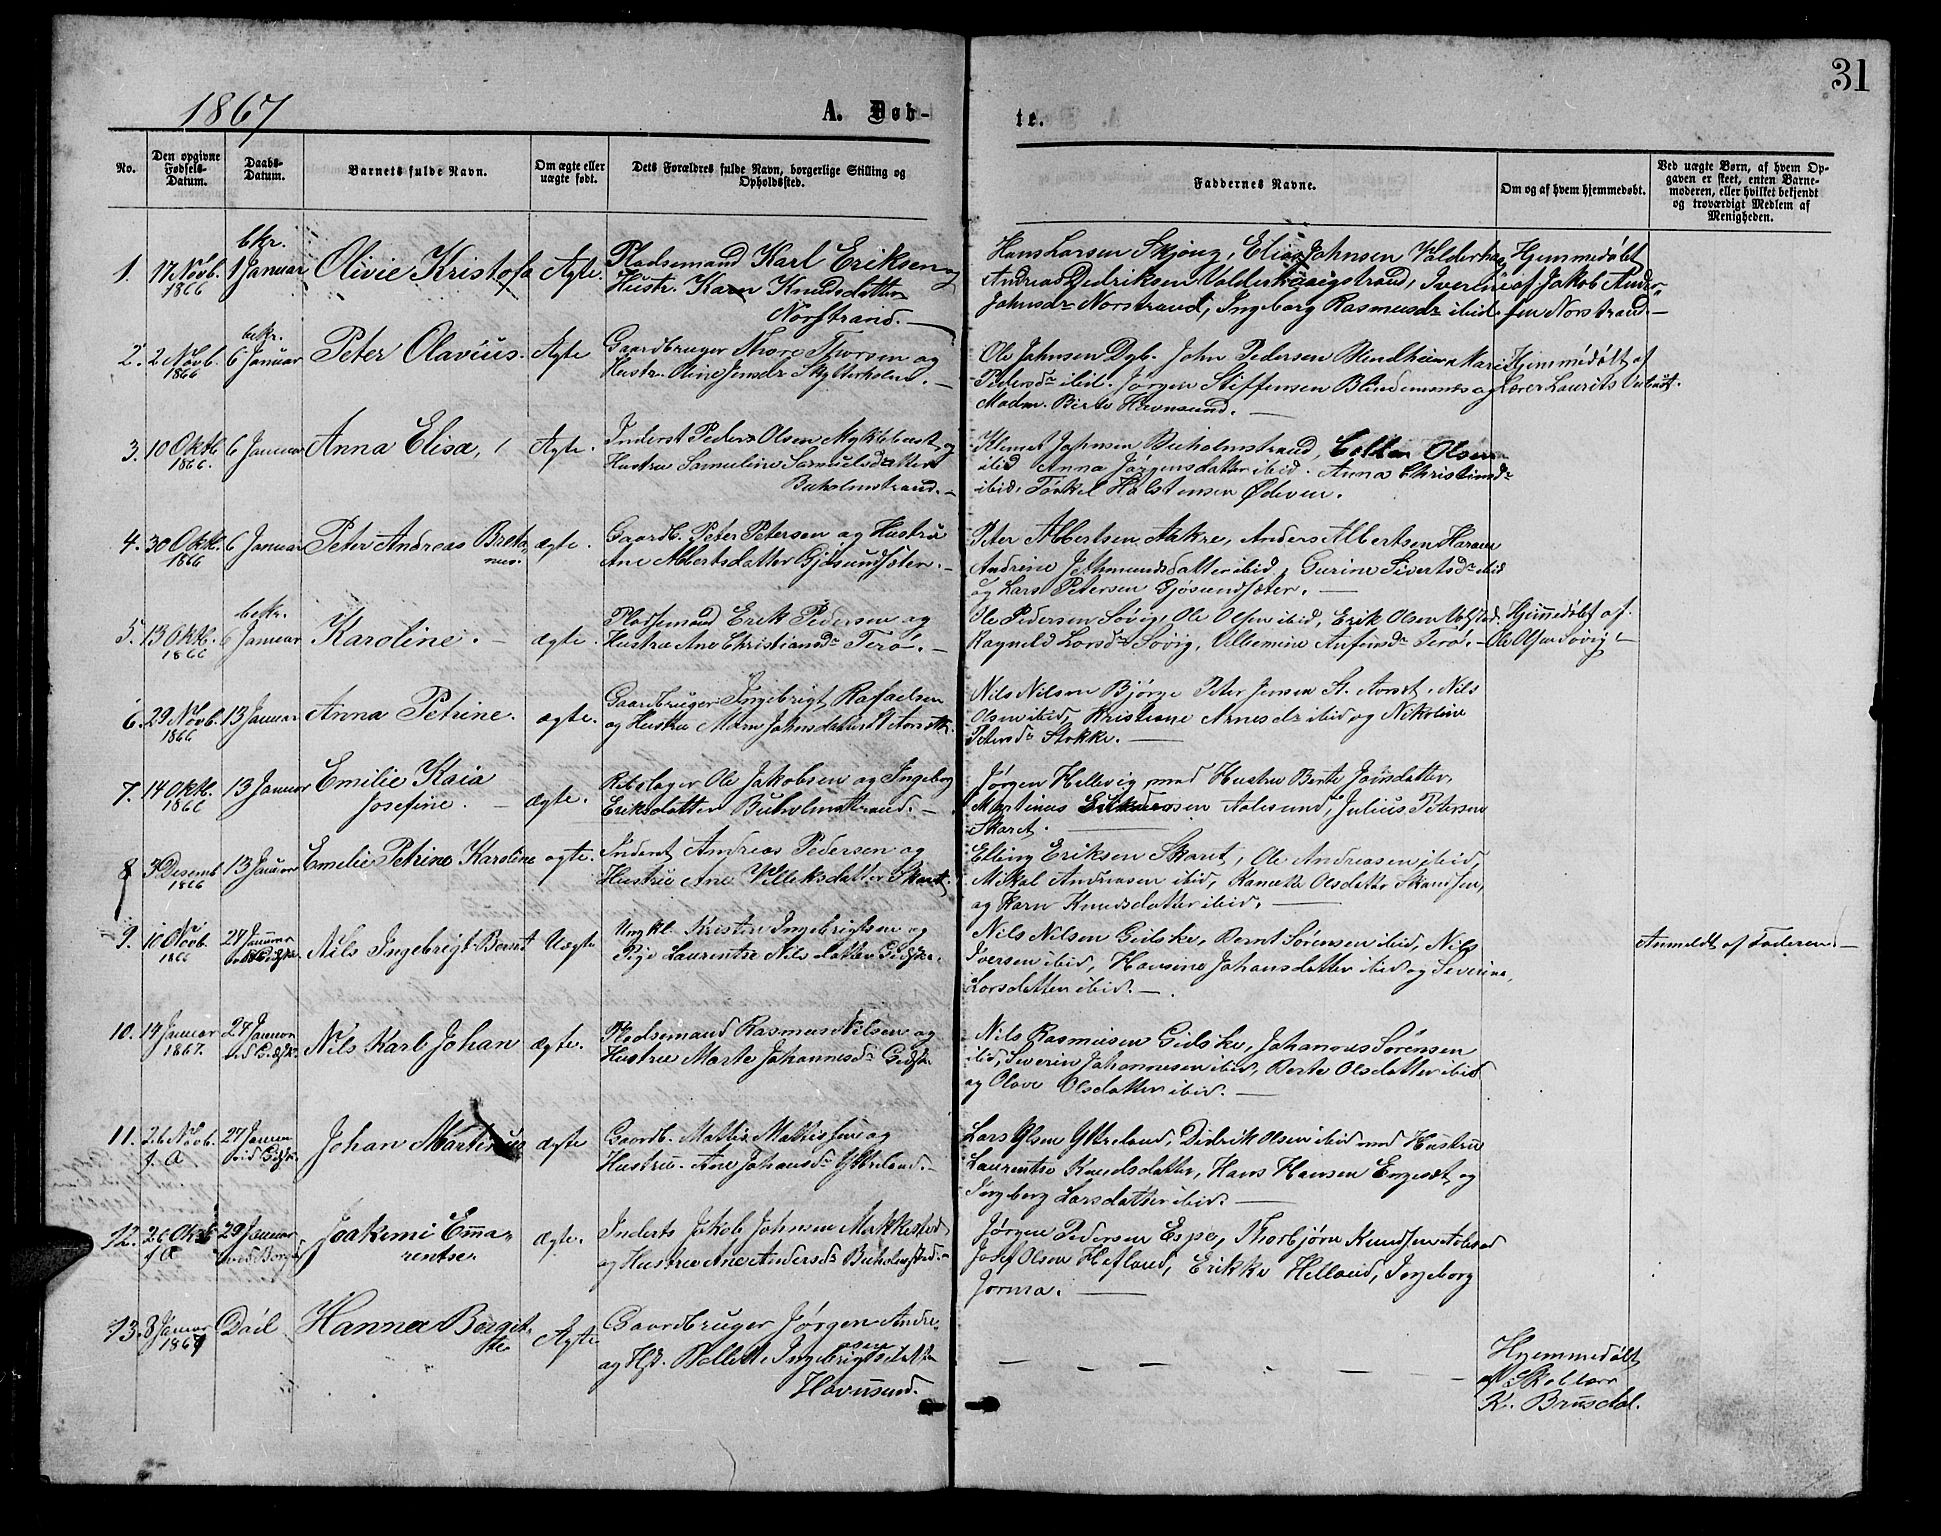 31
1867
A. Døb-
te.
No.
Den opgivne Fødsels-Datum.
Daabs-Datum.
Barnets fulde Navn.
Om ægte eller uægte født.
Dets Forældres fulde Navn, borgerlige Stilling og Opholdssted.
Faddernes Navne.
Om og af hvem hjemmedøbt.
Ved uægte Børn, af hvem Op-
gaven er skeet, enten Barne-
moderen, eller hvilket bekjendt
og troværdigt Medlem af
Menigheden.
1. 17 Novb. 1866
bkr. 1 Januar
Olivie Kristofa
Ægte.
Pladsemand Karl Eriksen og
Hustr. Karn Knudsdatter
Norstrand.
Hans Larsen Skjong, Elias Johnsen Valderhaug
Andreas Dedriksen Valderhaugstrand, Iverine
Johnsdr Norstrand, Ingeborg Rasmusdr ibid.
Hjemmedøbt
af Jakob Ander-
sen Norstrand.
2. 2 Novb. 1866
bekr. 6 Januar
Peter Olavius.
Ægte
Gaardbruger Thore Thorsen og
Hustr. Oline Jensdr Skytterholm.
Ole Johnsen Dyb. John Pedersen Blindheim Mari
Pedersdr ibid. Jørgen Steffensen Blindemnes og
Madm. Birte Havnsund.
Hjemmedøbt af
Lærer Laurits
3. 10 Oktb. 1866.
6 Januar
Anna Elisa,
Ægte.
Inderst Peder Olsen Myklebust og
Hustru Samuline Samuelsdatter
Buholmstrand.
Klemet Johnsen Buholmstrand, Olsen
ibid Anna Jørgensdatter ibid. Anna Christiansdr
ibid. Torkel Halstensen Ødeven.
4. 30 Oktb. 1866
6 Januar
Peter Andreas
ægte.
Gaardb. Peter Petersen og Hustru
Ane Albertsdatter Gjøsundsæter.
Peter Albertsen Aakre, Anders Albertsen Haram
Andrine Jethmundsdatter ibid, Gurine Sivertsdr ibid
og Lars Petersen Gjøsundsæter.
5. 13 Oktb. 1866
bekr. 6 Januar
Karoline.
ægte.
Pladsemand Erik Pedersen og
Hustru Ane Christiansdr Terø.
Ole Pedersen Søvig, Ole Olsen ibid, Erik Olsen
Ragnild Larsdr Søvig, Villemine Anfinsdr Terø.
Hjemmedøbt af
Ole Olsen Søvig
6. 29 Novb. 1866
13 Januar
Anna Petrine.
ægte.
Gaardbruger Ingebrigt Rafaelsen
og Hustru Maren Johnsdatter
Nils Nilsen Bjørge Peter Jensen St. Aarset, Nils
Olsen ibid, Kristiane Arnesdr ibid og Nikoline
Petersdr Stokke.
7. 14 Oktb. 1866
13 Januar
Emilie Kaia
Josefine.
ægte.
Rebslager Ole Jakobsen og Ingeborg
Eriksdatter Buholmstrand.
Jørgen Hellevig med Hustru Berte Jonsdatter
Martinus Aalesund, Julius Petersen
Skaret.
8 3 Desemb 1866
13 Januar
Emelie Petrine Karoline
ægte.
Inderst Andreas Pedersen og
Hustru Ane Villeksdatter Skaret
Elling Eriksen Skaret, Ole Andreasen ibid,
Mikal Andreasen ibid, Olsdatter
og Karn Knudsdatter ibid.
9. 10 Novb. 1866
27 Januar ved Gidske
Nils Ingebrigt Bernt
Uægte
Ungkl. Kristen Ingebrigtsen og
Pige Laurentse Nilsdatter Gidske.
Nils Nilsen Gidske, Bernt Sørensen ibid, Nils
Iversen ibid, Hansine Johansdatter ibid og Severine
Larsdatter ibid.
Anmeldt af Faderen.
10. 14 Januar 1867.
27 Januar ved Gidske.
Nils Karl Johan
ægte.
Pladsemand Rasmus Nilsen og
Hustru Marte Johannesdr Gidske.
Nils Rasmusen Gidske, Johannes Sørensen
ibid, Severin Johannesen ibid, Berte Olsdatter ibid
og Olave Olsdatter ibid.
11. 26 Novb. f. A
27 Januar ved Gidske.
Johan Martinus
ægte
Gaardb. Mattis Mattissen og
Hustru. Ane Johansdr Ytterland.
Lars Olsen Ytterland, Didrik Olsen ibid med Hustru
Laurentse Knudsdatter, Hans Hansen Engesæt og
Ingeborg Larsdatter ibid.
12. 26 Oktb f A
29 Januar ved Borgu
Joakimi Emma-
rentse.
ægte.
Inderts Jakob Johnsen
og Hustru Ane Andersdr
Jørgen Pedersen Espe, Thorbjørn Knudsen
Josef Olsen Hefland, Erikke Helland, Ingeborg
13. 8 Januar 1867
Død
Hanna Bergit-
te
Ægte
Gaardbruger Jørgen Andre-
asen
og Hst. Pollette Ingebrigtsdatter
Havnsund.
Hjemmedøbt
af Skolelærer
K. Brusdal.